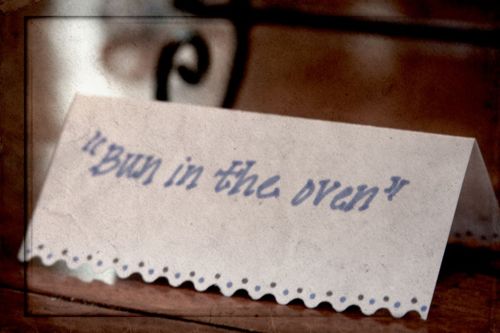 "Bun in the oven"